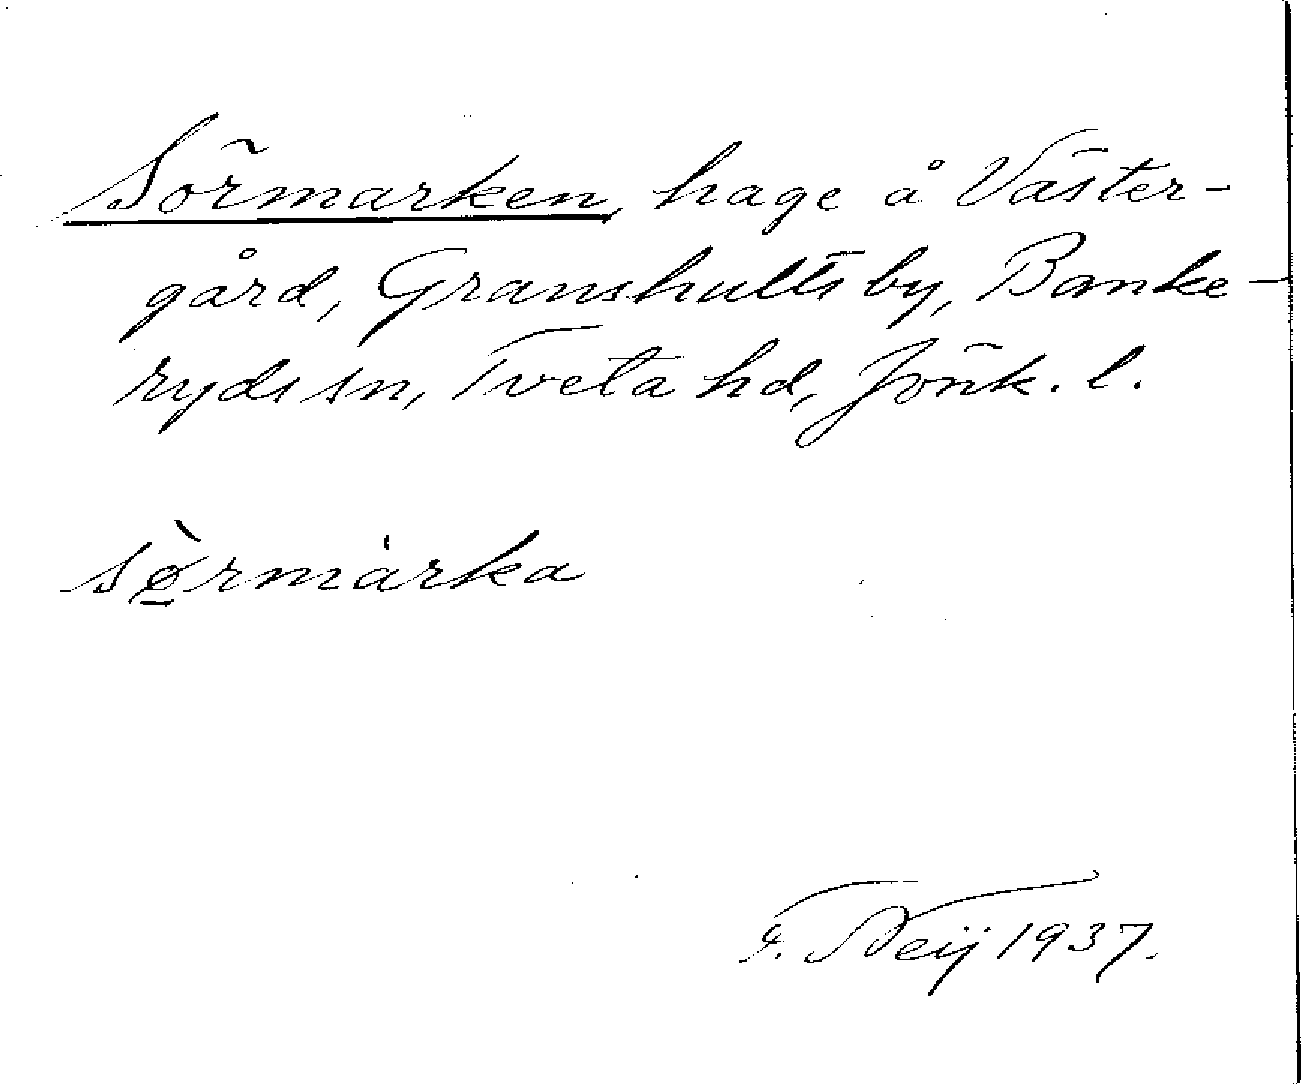 Sörmarken, hage å Väster-
gård, Granshults by, Banke-
ryds sn, Tveta hd, Jönk. l.
sø̠̀rmárka
F. Neij 1937.